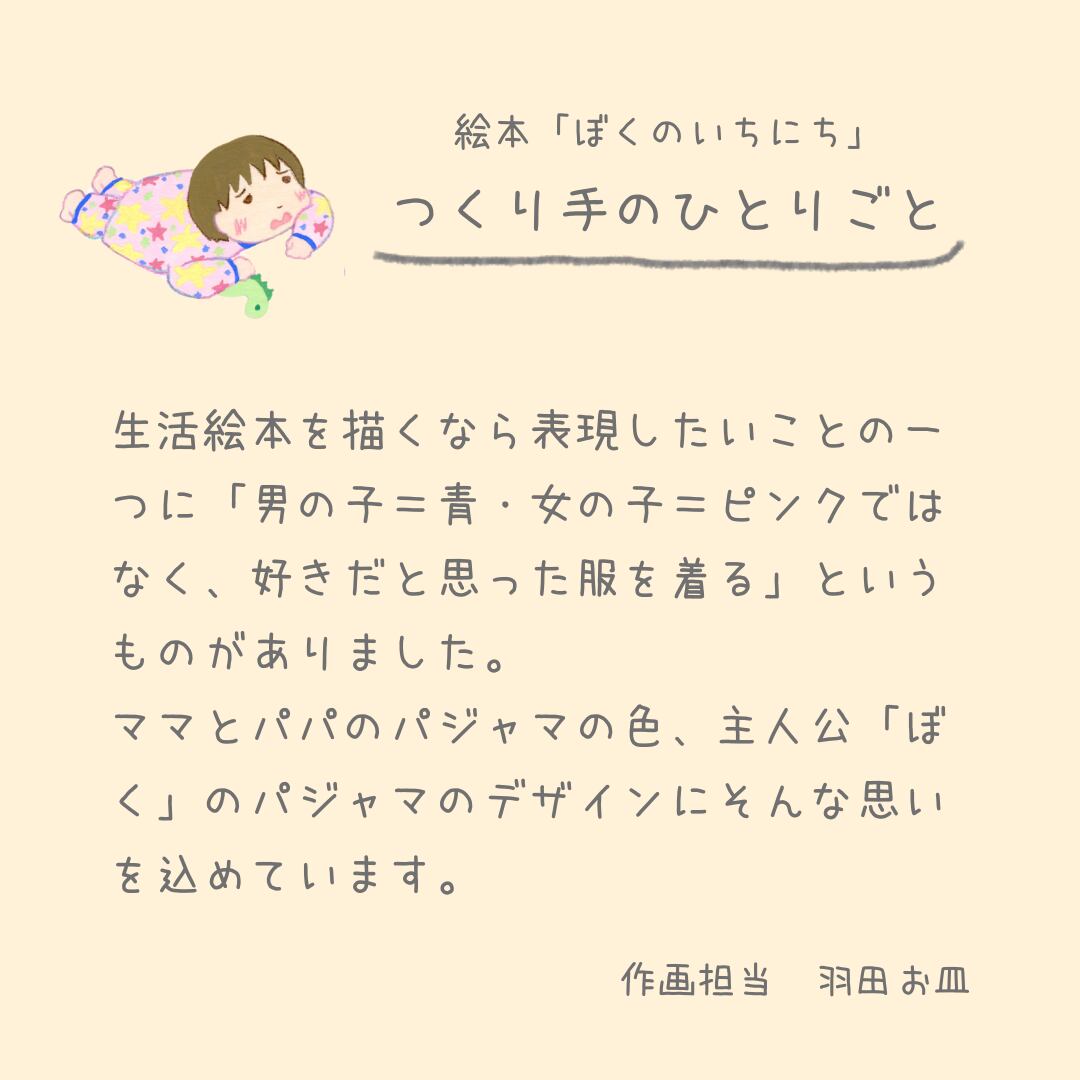 絵本「ぼくのいちにち」
つくり手のひとりごと
生活絵本を描くなら表現したいことの一
つに「男の子＝青・女の子＝ピンクでは
なく、好きだと思った服を着る」という
ものがありました。
ママとパパのパジャマの色、主人公「ぼ
く」のパジャマのデザインにそんな思い
を込めています。
作画担当　羽田お皿